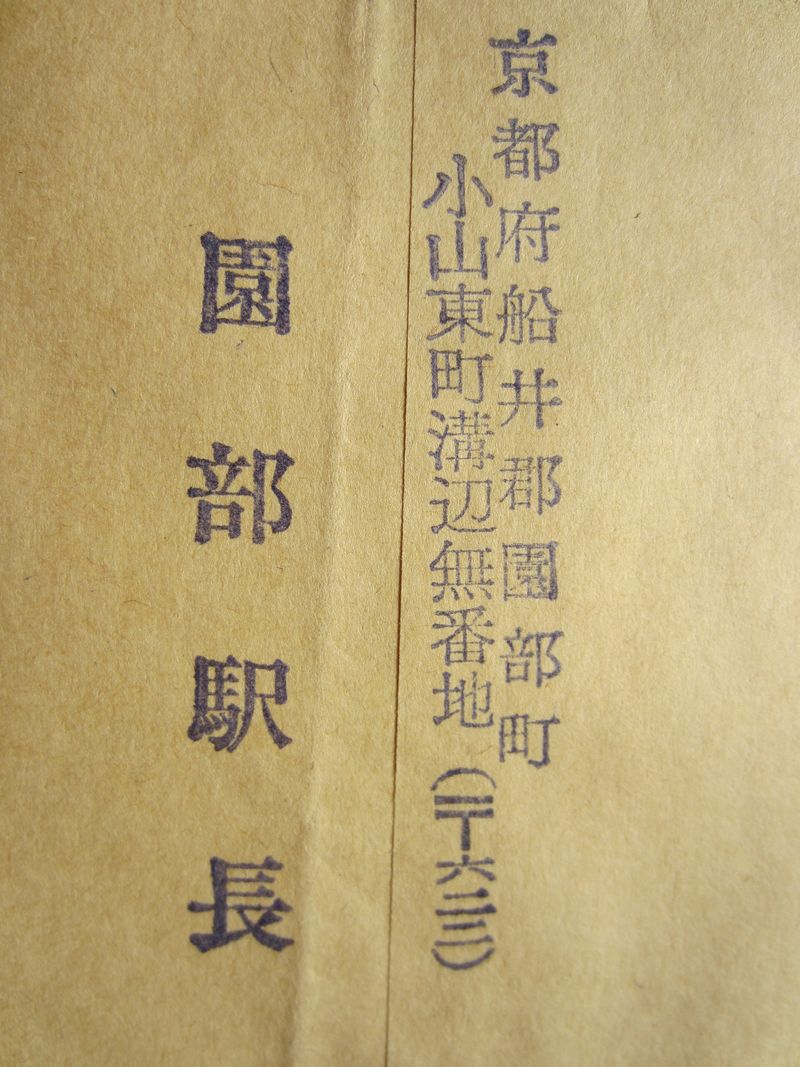 京都府船井郡園部町
小山東町溝辺無番地（〒六二二）
園部駅長